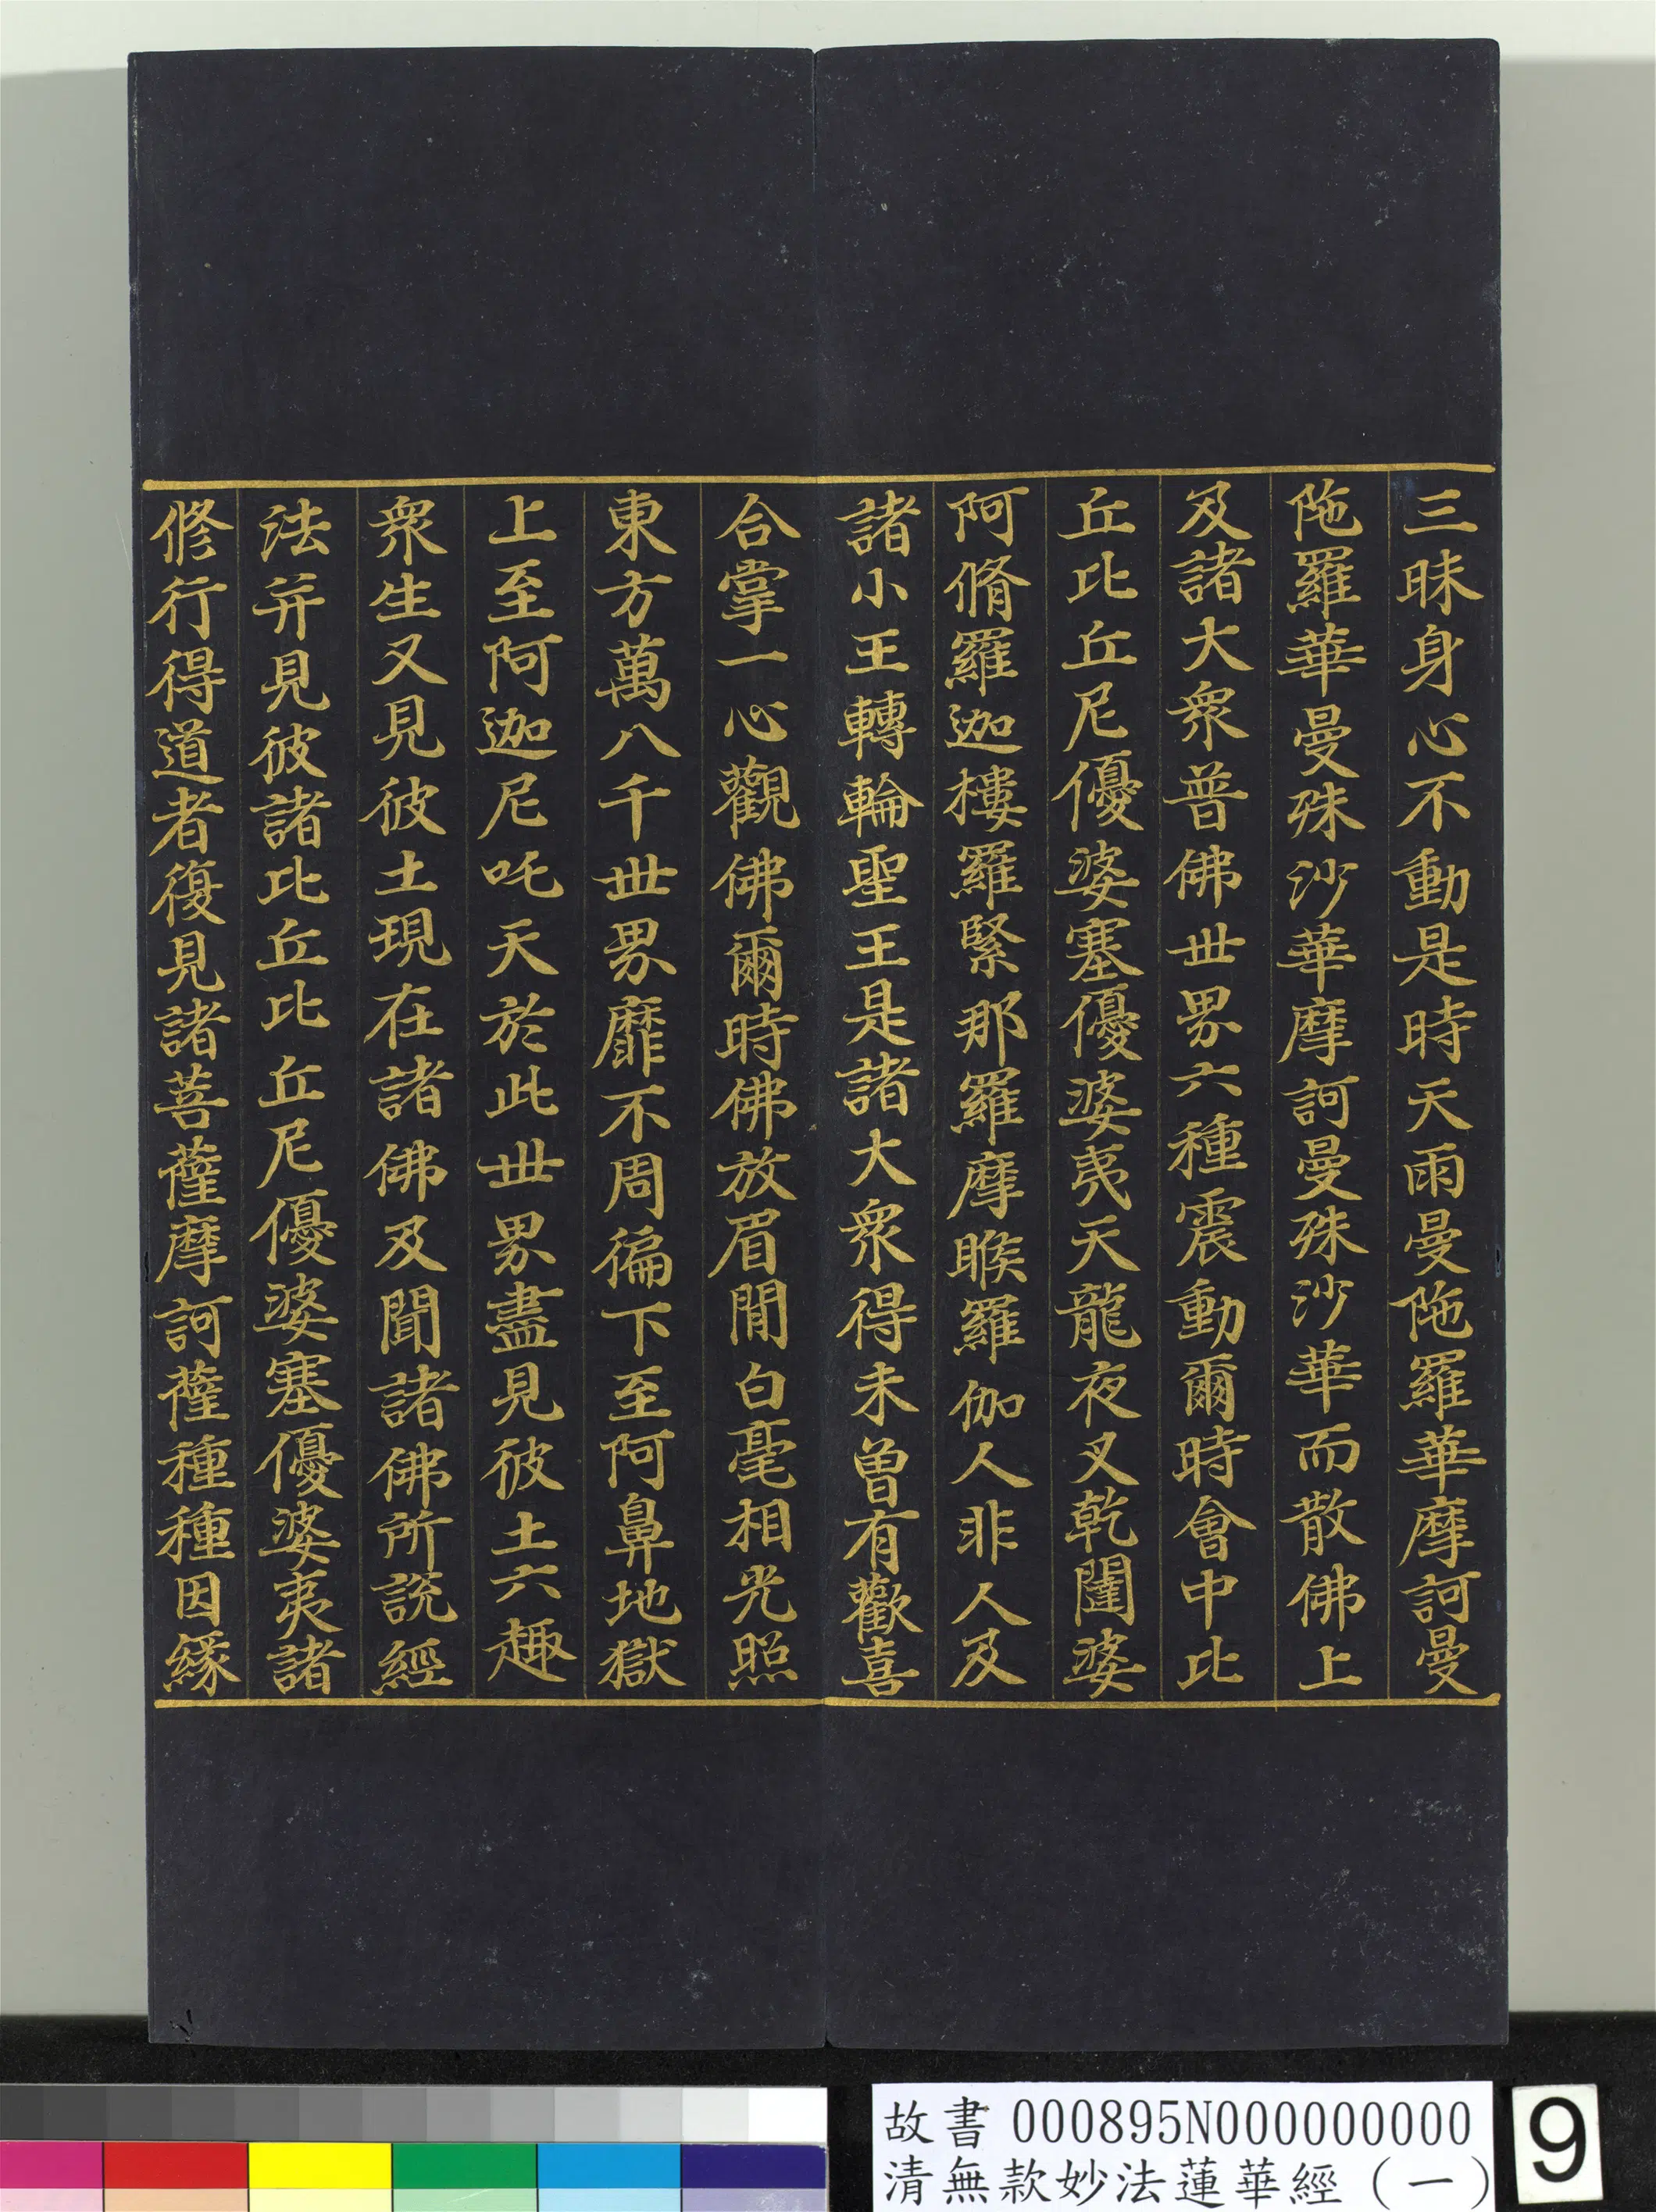 三昧身心不動是時天雨曼陁羅華摩訶曼
陁羅華曼殊沙華摩訶曼殊沙華而散佛上
及諸大衆普佛世界六種震動爾時會中比
丘比丘尼優婆塞優婆夷天龍夜叉乾闥婆
阿脩羅迦樓羅緊那羅摩睺羅伽人非人及
諸小王轉輪聖王是諸大衆得未曾有歡喜
合掌一心觀佛爾時佛放眉間白毫相光照
東方萬八千世界靡不周徧下至阿鼻地獄
上至阿迦尼吒天於此世界盡見彼土六趣
衆生又見彼土現在諸佛及聞諸佛所說經
法并見彼諸比丘比丘尼優婆塞優婆夷諸
修行得道者復見諸菩薩摩訶薩種種因緣
故書 000895N000000000
清無款妙法蓮華經（一）
9